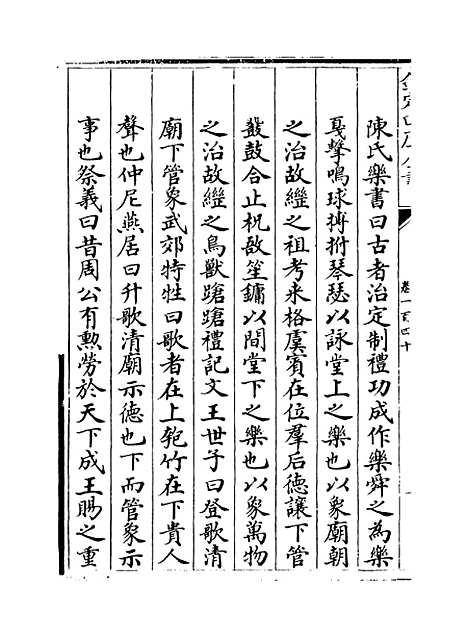 欽定四庫全書
卷一百四十
陳氏樂書曰古者治定制禮功成作樂舜之為樂
戛擊鳴球搏拊琴瑟以詠堂上之樂也以象廟朝
之治故繼之祖考來格虞賓在位羣后德讓下管
鼗鼓合止柷敔笙鏞以間堂下之樂也以象萬物
之治故繼之鳥獸蹌蹌禮記文王世子曰登歌清
廟下管象武郊特牲曰歌者在上匏竹在下貴人
聲也仲尼燕居曰升歌清廟示德也下而管象示
事也祭義曰昔周公有勲勞於天下成王賜之重